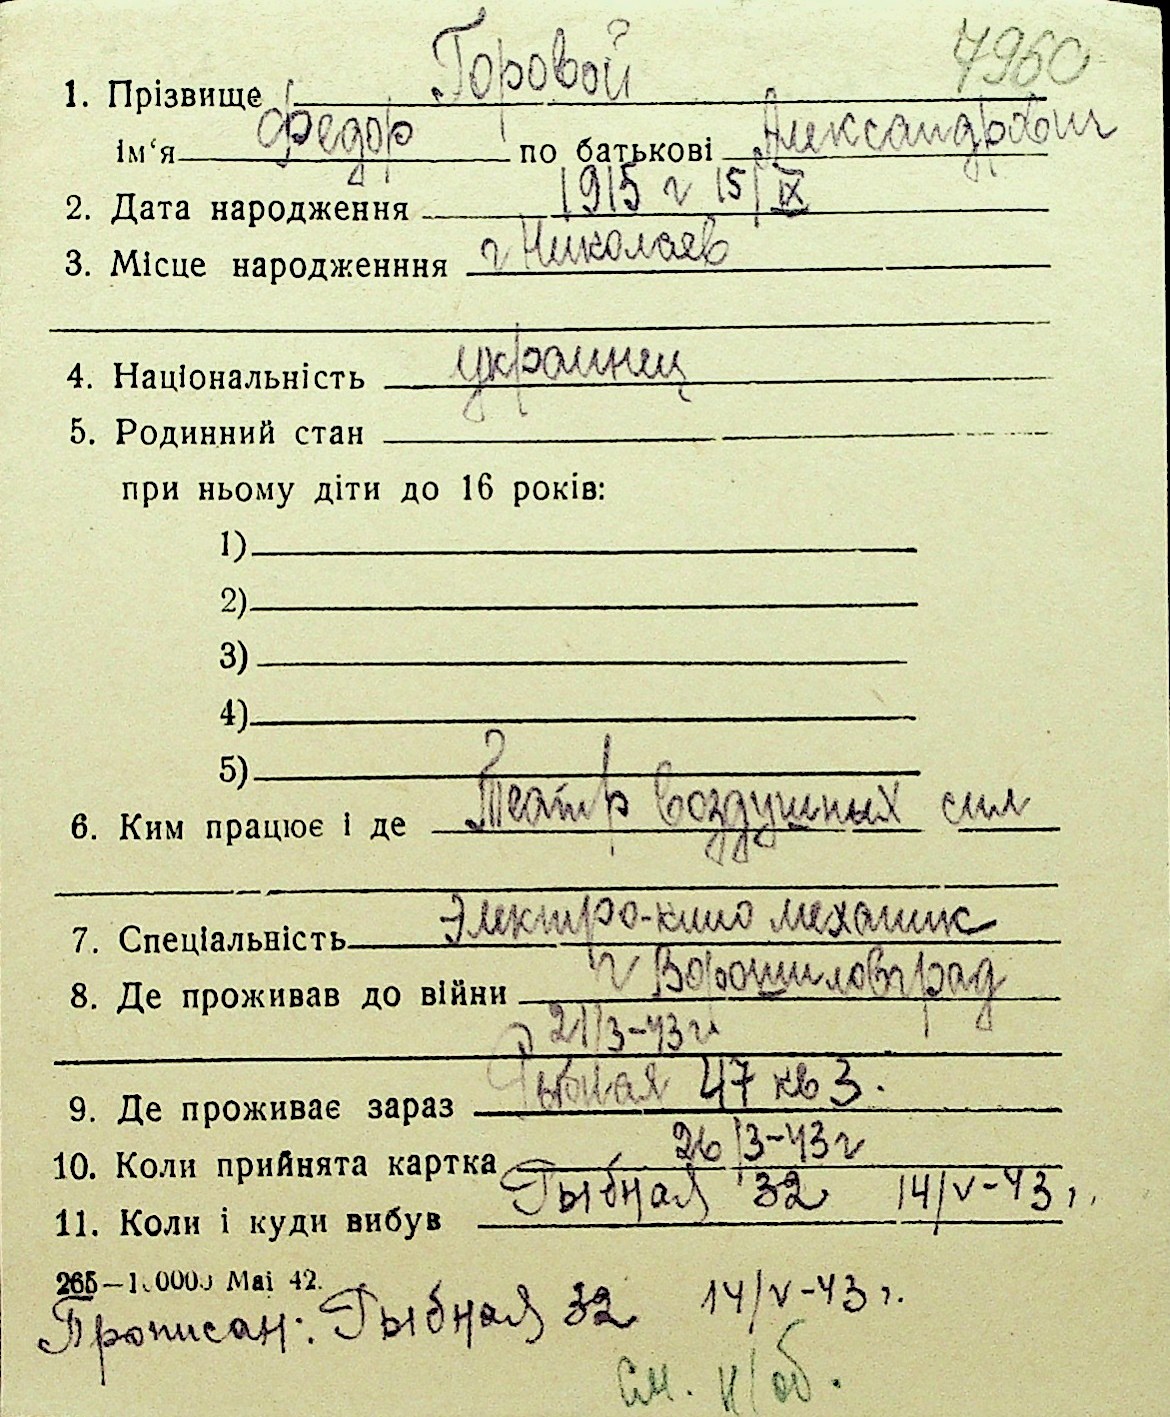 7960
1. Прізвище Горовой
ім‘я Федор по батькові Александрович
2. Дата народження 1915 г 15/IX
3. Місце народженння г Николаев
4. Національність украинец
5. Родинний стан
при ньому діти до 16 років:
1)
2)
3)
4)
5)
6. Ким працює і де Театр воздушных сил
7. Спеціальність Электро-кино механик
8. Де проживав до війни г Ворошиловград
21/3-43г
9. Де проживає зараз Рыбная 47 кв 3.
10. Коли прийнята картка 26/3-43г
11. Коли і куди вибув Рыбная 32 14/V-43г.
265— Mai 42.
Прописан: Рыбная 32 14/V-43г.
См. н/об.